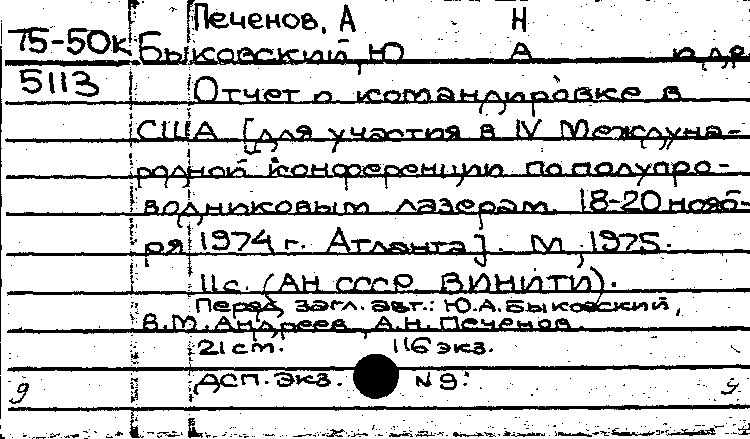 Печенов, А Н
75-50к Быковский, Ю А и др
5113 Отчет о командировке в
США [для участия в IV Междуна-
родной конференции по полупро-
водниковым лазерам. 18-20 нояб-
ря 1974 г. Атланта]. М., 1975.
11 с. (АН СССР. ВИНИТИ).
Перед загл. авт.: Ю.А. Быковский,
В.М. Андреев, А.Н. Печенов.
21 ст. 116 экз.
g ДСП. экз. N 9: